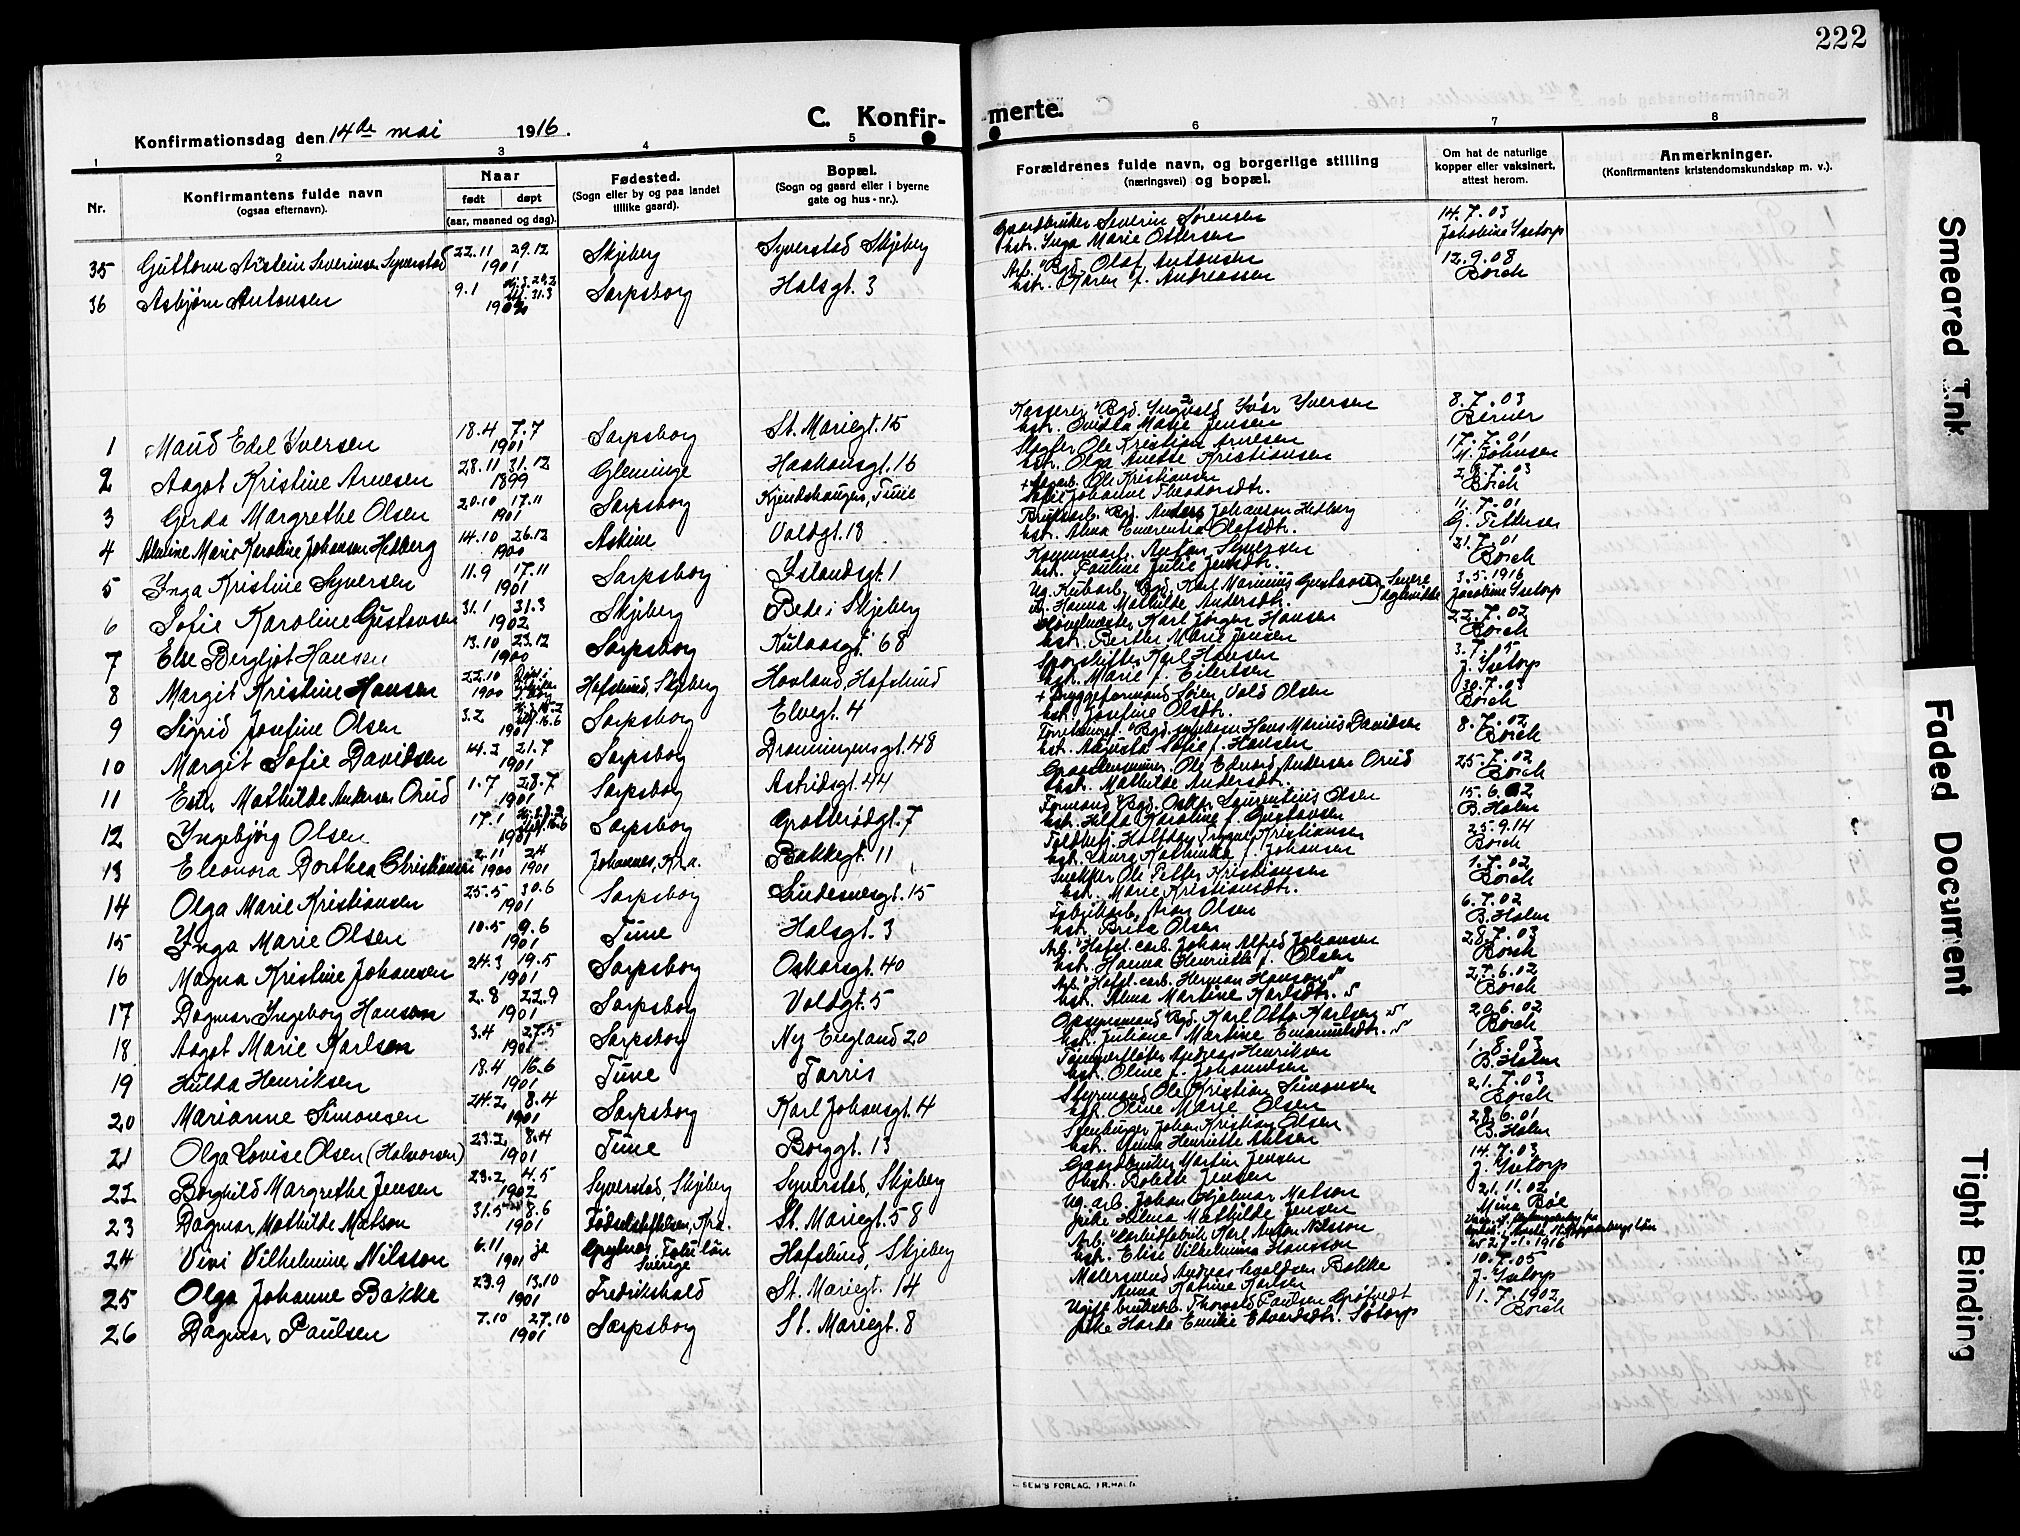 222
C. Konfir- -merte.
Konfirmationsdag den 14de mai 1916.
1 2 3 4 5 6 7 8
Nr.
Konfirmantens fulde navn
(ogsaa efternavn).
Naar
født døpt
(aar, maaned og dag).
Fødested.
(Sogn eller by og paa landet
tillike gaard).
Bopæl.
(Sogn og gaard eller i byerne
gate og hus-nr.).
Forældrenes fulde navn, og borgerlige stilling
(næringsvei) og bopæl.
Om hat de naturlige
kopper eller vaksinert,
attest herom.
Anmerkninger.
(Konfirmantens kristendomskundskap m. v.).
35 Guttorm Arstein Severinsen Syverstad 22.11 29.12 1901 Skjeberg Syverstad Skjeberg Gaardbruker Severin Sørensen 14.7.03
hstr. Inga Marie Ottersen Jakobine Ystorp
36 Asbjørn Antonsen 9.1 31.3 Sarpsborg Halsgt. 3 Arb. Bgd. Olaf Antonsen 12.9.08
hstr. Karen f. Andreassen Borch
1 Maud Edel Iversen 18.4 7.7 1901 Sarpsborg St. Mariegt. 15 Kasserer Bgd. Iver Iversen 8.7.03
hstr. Marie Jensen Berner
2 Aagot Kristine Arnesen 28.11 31.12 1899 Glemminge Haakonsgt. 16 Slagter Ole Kristian Arnesen 17.7.01
hstr. Olga Anette Kristiansen Johnsen
3 Gerda Margrethe Olsen 20.10 17.11 1901 Sarpsborg Kjendshaugen, Tune Ole Kristiansen 28.7.03
Johanne Theodorsdtr. Borch
4 Alvine Marie Karoline Johansen Hedberg 14.10 26.12 1900 Askim Voldgt. 18 Bruksarb. Bgd. Anders Johanson Hedberg 11.7.01
hstr. Alma Emerentia Olafsdtr. G. Pettersen
5 Inga Kristine Syversen 11.9 17.11 1901 Sarpsborg Islandsgt. 1 Anton Syversen 31.7.01
hst. Pauline Julie Jensdtr. Borch
6 Sofie Karoline Gustavsen 31.1 31.3 1902 Skjeberg Bede i Skjeberg Ug. Kubarb. Bgd. Karl Marinius Gustavsen 3.5.1916
Hanna Mathilde Andersdtr. Jacobine Ystorp
7 Else Bergljot Hansen 13.10 23.12 1900 Sarpsborg Kulaasgt. 68 Karl Jørgen Hansen 22.7.02
hst. Berthe Marie Jensen Borch
8 Margit Kristine Hansen 22.10 1900 Hafslund, Skjeberg Hovland, Hafslund Sporskifter Karl Hansen 3.7.05
hst. Marie f. Eilertsen J. Ystorp
9 Sigrid Josefine Olsen 3.2 16.6 1901 Sarpsborg Elvegt. 4 + Bryggeformand Søren Vold Olsen 30.7.03
hst. Josefine Olsdtr. Borch
10 Margit Sofie Davidsen 14.2 21.7 1901 Sarpsborg Dronningensgt. 48 Hans Marius Davidsen 8.7.02
hst. Augusta Sofie f. Hansen Borch
11 Ester Mathilde Andersen Orud 1.7 28.7 1901 Sarpsborg Astridsgt. 44 Ole Edvard Andersen Orud 25.7.02
hstr. Mathilde Andersdtr. Borch
12 Ingebjørg Olsen 17.1 16.6 1901 Sarpsborg Grotterødgt. 7 Formand Bgd. Oskar Laurentius Olsen 15.6.02
hst. Hilda Karoline f. Gustavsen B. Holm
13 Eleonora Dorthea Christiansen 2.11 2.4 1900 1901 Johannes, Kra. Bakkegt. 11 Halfdan Trygve Kristiansen 25.9.14
hst. Laura Kathinka f. Johansen Borch
14 Olga Marie Kristiansen 25.5 30.6 1901 Sarpsborg Lindesnesgt. 15 Snekker Ole Petter Kristiansen 1.7.02
hst. Marie Kristiansdtr. Borch
15 Inga Marie Olsen 10.5 9.6 1901 Tune Halsgt. 3 Fabrikarb. Aron Olsen 6.7.02
hst. Brita Olsen B. Holm
16 Magna Kristine Johansen 24.3 19.5 1901 Sarpsborg Oskarsgt. 40 Arb. Hafsl. carb. Johan Alfred Johansen 28.7.03
hst. Hanna Henriette f. Olsen Borch
17 Dagmar Ingeborg Hansen 2.8 22.9 1901 Sarpsborg Voldgt. 5 Arb. Hafsl. carb. Herman Hansen 27.6.02
hst. Alma Martine Karlsdtr. Borch
18 Aagot Marie Karlsen 3.4 27.5 1901 Sarpsborg Ny England 20 Opsynsmand Bgd. Karl Otto Karlsen 20.6.02
hst. Juliane Martine Emanuelsdtr. Borch
19 Hulda Henriksen 18.4 16.6 1901 Tune Torris Tømmerfløter Andreas Henriksen 1.8.03
hst. Oline f. Johannesen B. Holm
20 Marianne Simonsen 24.2 8.4 1901 Sarpsborg Karl Johansgt. 4 Styrmand Ole Kristian Simonsen 21.7.03
hst. Oline Marie Olsen Borch
21 Olga Lovise Olsen (Halvorsen) 23.2 8.4 1901 Tune Borggt. 13 Stenhugger Johan Kristian Olsen 28.6.01
hst. Anna Henriette Nilsen B. Holm
22 Borghild Margrethe Jensen 23.2 4.5 1902 Syverstad, Skjeberg Syverstad, Skjeberg Gaardbruker Martin Jensen 14.7.03
hst. Bolette Jensen J. Ystorp
23 Dagmar Mathilde Matson 31.5 8.6 1901 Fødselsstiftelsen, Kra. St. Mariegt. 58 Ug. arb. Johan Hjalmar Matson 21.11.02
pike Hilma Mathilde Jensen Mina Bøe
24 Vivi Vilhelmine Nilsson 6.11 ja 1901 Sverige Hafslund, Skjeberg Arb. Karbidfabrik Karl Anton Nilsson
hst. Elise Vilhelmina Hansson 27.1.1916
25 Olga Johanne Bakke 23.9 13.10 1901 Fredrikshald St. Mariegt. 14 Malersvend Andreas Evaldsen Bakke 10.7.05
Anna Katrine Karlsen J. Ystorp
26 Dagmar Paulsen 7.10 27.10 1901 Sarpsborg St. Mariegt. 8 Ugift bruksarb. Thorvald Paulsen Grøtvedt 1.7.1902
pike Harda Emilie Edvardsdtr. Søtorp Borch
SEM'S FORLAG, FR.HALD.
Smeared Ink
Faded Document
Tight Binding